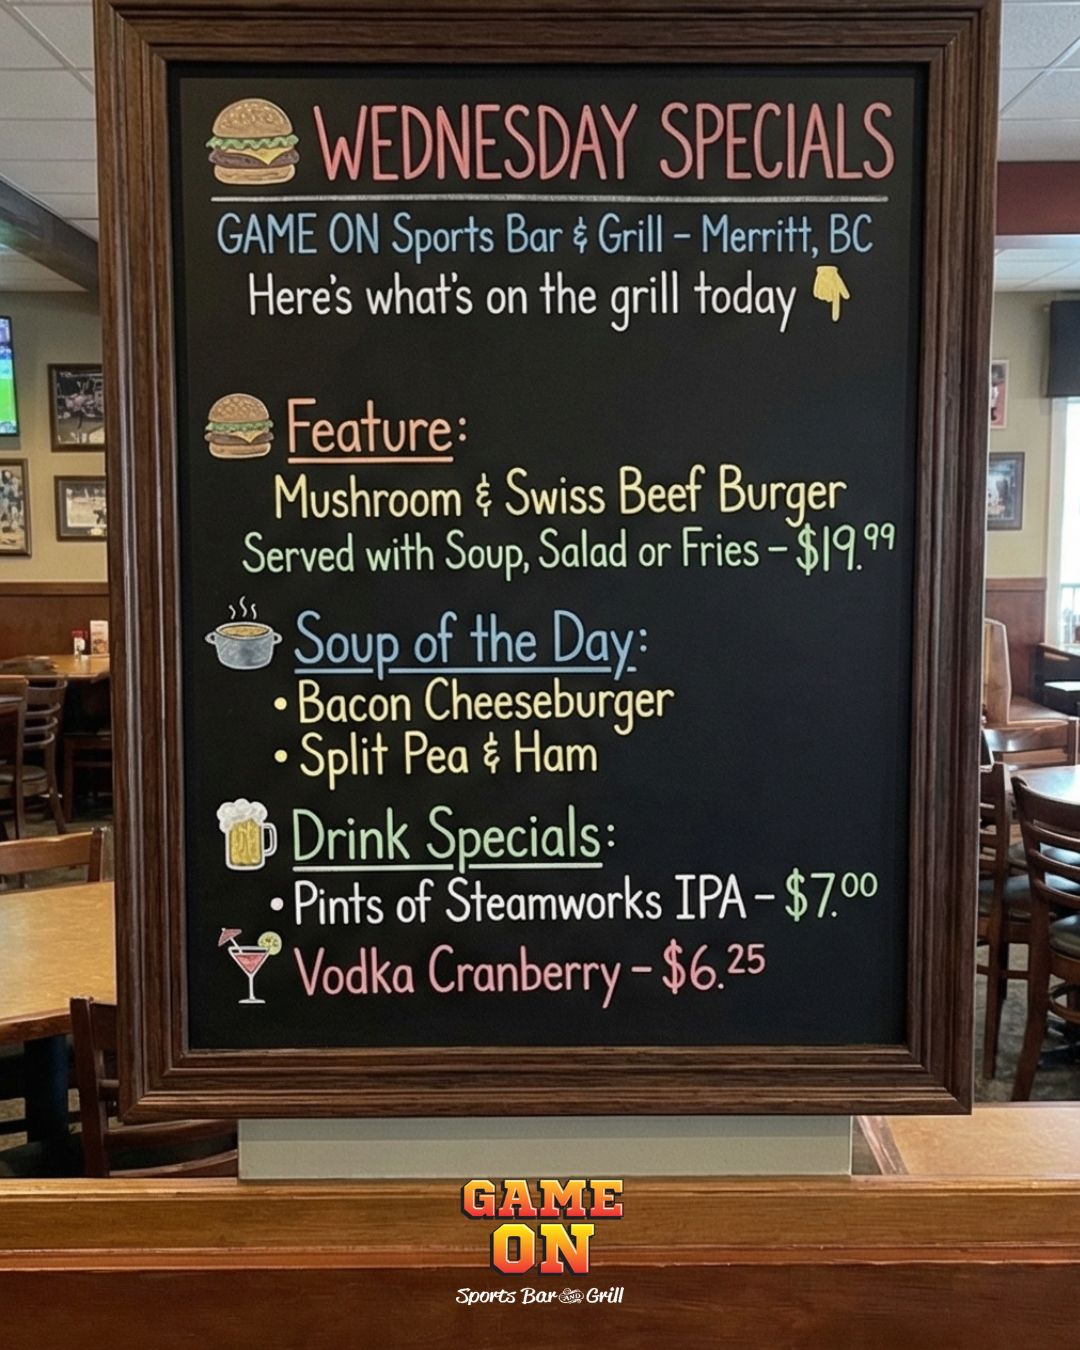 WEDNESDAY SPECIALS
GAME ON Sports Bar & Grill – Merritt, BC
Here's what's on the grill today
Feature:
Mushroom & Swiss Beef Burger
Served with Soup, Salad or Fries – $19.99
Soup of the Day:
• Bacon Cheeseburger
• Split Pea & Ham
Drink Specials:
• Pints of Steamworks IPA – $7.00
Vodka Cranberry – $6.25
GAME
ON
Sports Bar AND Grill